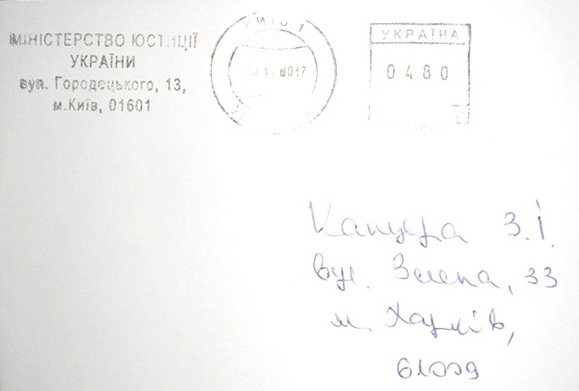 МІНІСТЕРСТВО ЮСТИЦІЇ
УКРАЇНИ
вул. Городецького, 13,
м.Київ, 01601
УКРАЇНА
0480
З.І.
вул. Зелена, 33
м. Харків,
61009